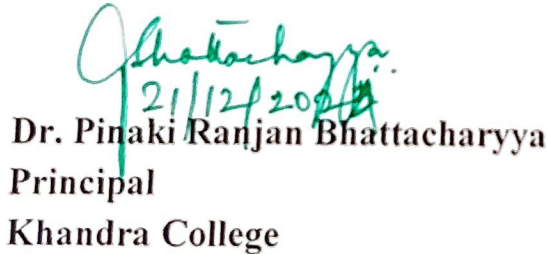 Bhattacharyya.
21/12/
Dr. Pinaki Ranjan Bhattacharyya
Principal
Khandra College